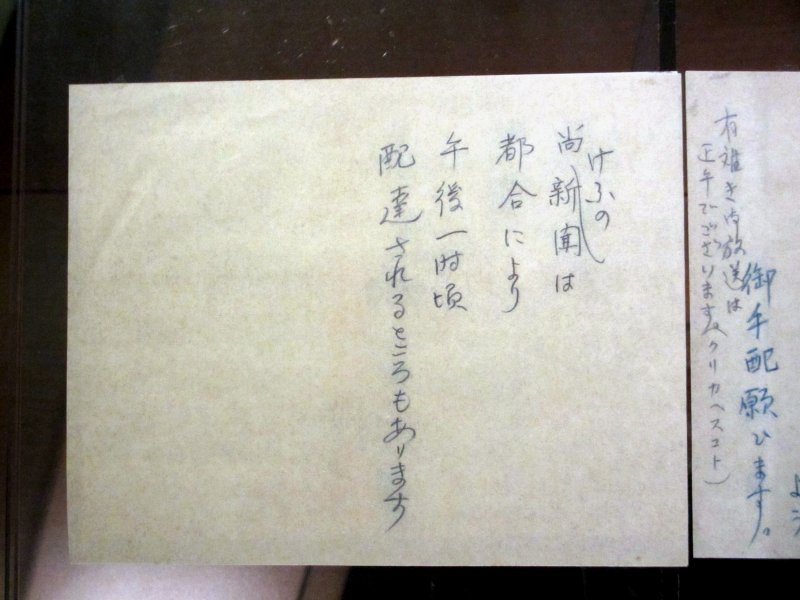 御手配願ひます。
有難き御放送は
正午でございます(クリカヘスコト)
尚、けふの新聞は
都合により
午後一時頃
配達されるところもあります